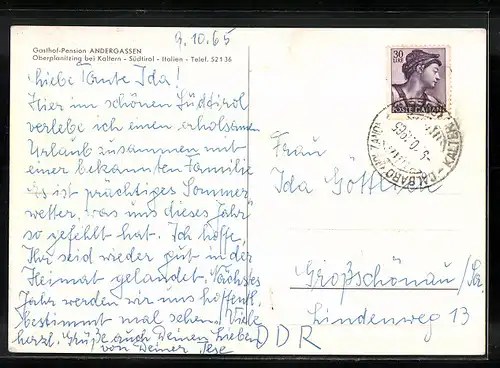 Gasthof-Pension ANDERGASSEN
Oberplanitzing bei Kaltern - Südtirol - Italien - Telef. 52136
9.10.65
Liebe Tante Ida!
Hier im schönen Südtirol
verlebe ich einen erholsamen
Urlaub zusammen mit
einer bekannten Familie
Es ist prächtiges Sommer
wetter, was uns dieses Jahr
so gefehlt hat. Ich hoffe,
Ihr seid wieder gut in der
Heimat gelandet. Nächstes
Jahr werden wir uns hoffentl.
bestimmt mal sehen. Viele
herzl. Grüße auch Deinen Lieben
von Deiner
30
LIRE
POSTE ITALIANE
KALTERN - CALDARO
Frau
Ida Göttlich
Großschönau/Sa.
Lindenweg 13
DDR